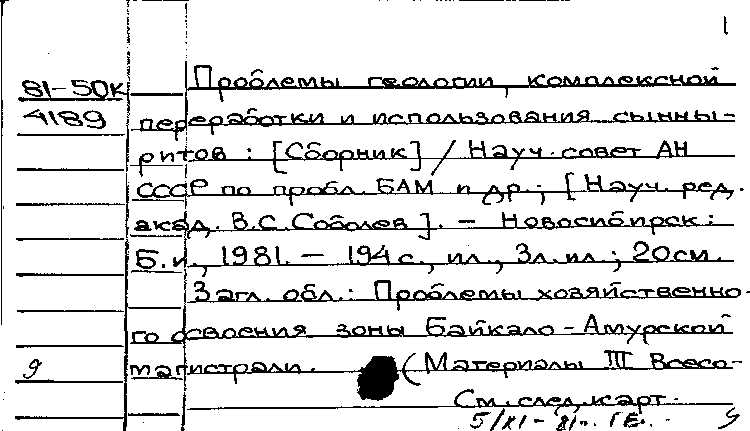 1
81-50К Проблемы геологии, комплексной
4189 переработки и использования сынны-
ритов : [Сборник] / Науч. совет АН
СССР по пробл. БАМ и др.; [Науч. ред.
акад. В.С.Соболев]. – Новосибирск :
Б.и., 1981. – 194 с., ил., 3л.ил.; 20см.
Загл. обл.: Проблемы хозяйственно-
го освоения зоны Байкало-Амурской
9 магистрали. (Материалы III Всесо-
См. след. карт.
5/XI-81. Г.Е.